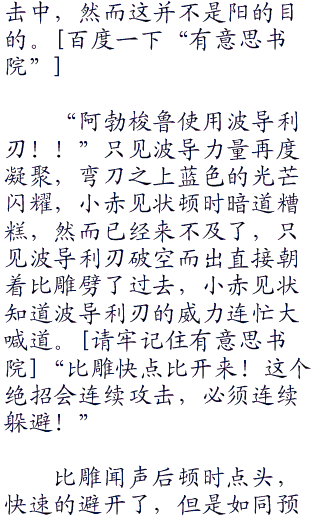 击中，然而这并不是阳的目
的。[百度一下“有意思书
院”]
“阿勃梭鲁使用波导利
刃！！”只见波导力量再度
凝聚，弯刀之上蓝色的光芒
闪耀，小赤见状顿时暗道糟
糕，然而已经来不及了，只
见波导利刃破空而出直接朝
着比雕劈了过去，小赤见状
知道波导利刃的威力连忙大
喊道。[请牢记住有意思书
院]“比雕快点比开来！这个
绝招会连续攻击，必须连续
躲避！”
比雕闻声后顿时点头，
快速的避开了，但是如同预